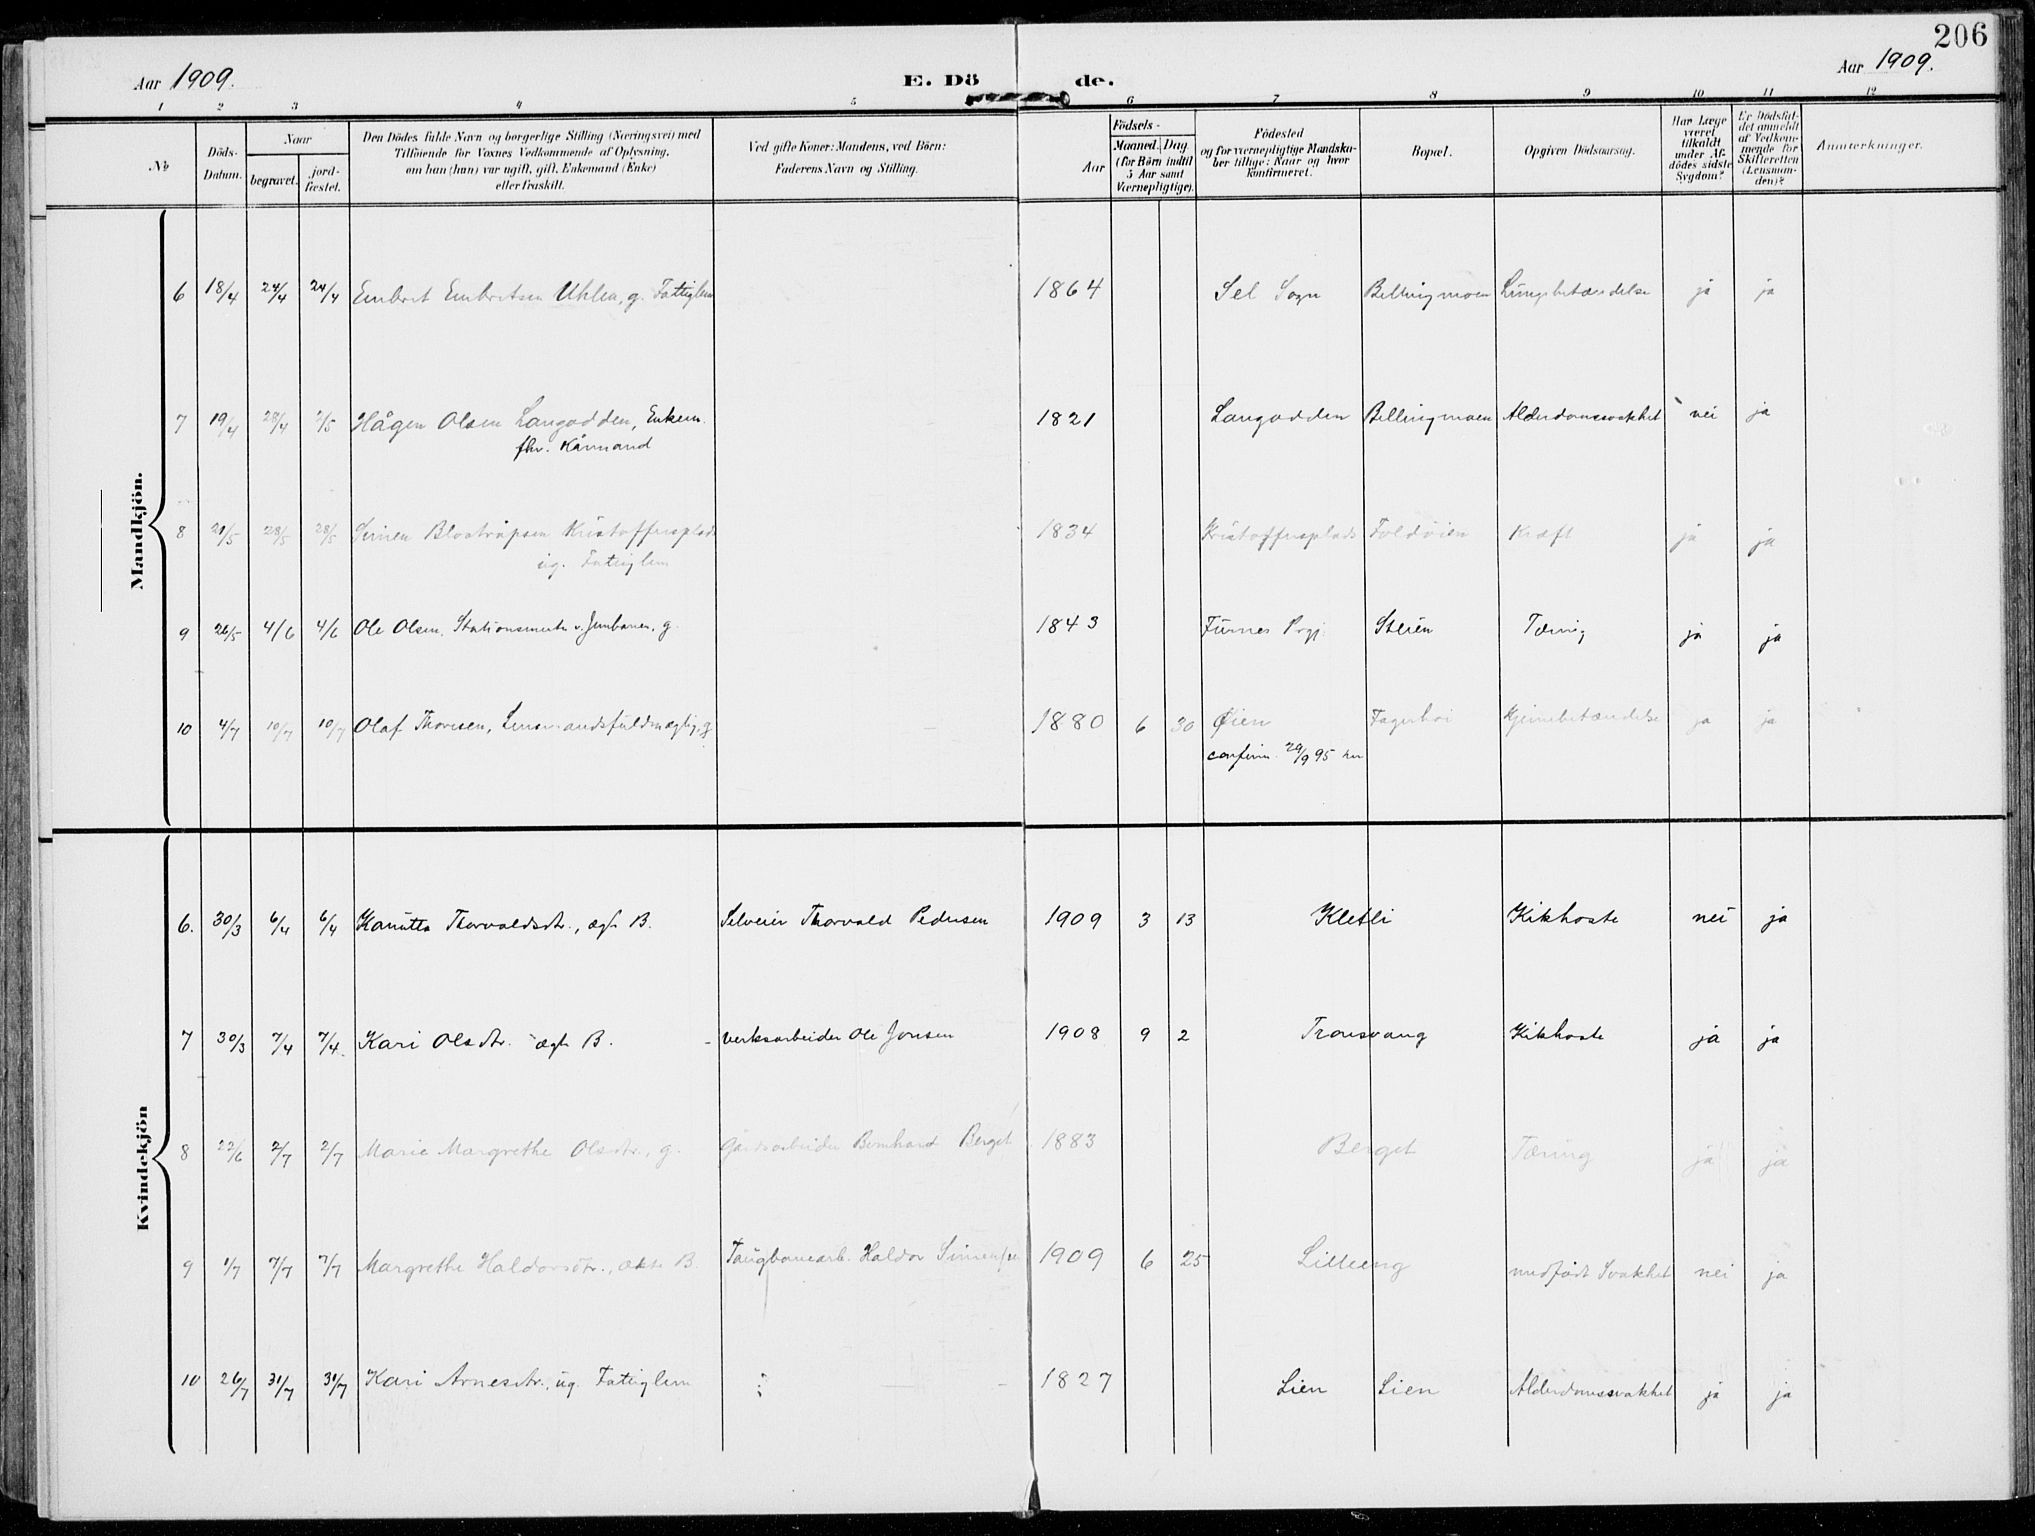 206
Aar 1909. E. Dö de. Aar 1909.
1 2 3 4 5 6 7 8 9 10 11 12
№ Döds-Datum. Naar begravet. jord-fæstet. Den Dödes fulde Navn og borgerlige Stilling (Næringsvei) med Tilföiende for Voxnes Vedkommende af Oplysning, om han (hun) var ugift, gift, Enkemand (Enke) eller fraskilt. Ved gifte Koner: Mandens, ved Börn: Faderens Navn og Stilling. Födsels- Aar Maaned. Dag (for Börn indtil 5 Aar samt Værnepligtige). Födested og for værnepligtige Mandskaber tillige: Naar og hvor konfirmeret. Bopæl. Opgiven Dödsaarsag. Har Læge været tilkaldt under Afdödes sidste Sygdom? Er Dödsfaldet anmeldt af Vedkommende for Skifteretten (Lensmanden)? Anmærkninger.
Mandkjön.
6 18/4 24/4 24/4 Embret Embretsen Uhlen, g. Fattiglem 1864 Sel Sogn Bellingmoen Lungebetændelse ja ja
7 19/4 28/4 2/5 Hågen Olsen Langodden, Enkem. 1821 Langodden Bellingmoen Alderdomssvakhet nei ja
fhv. Kårmand
8 21/5 28/5 28/5 Simen Kristoffersplads 1834 Kristoffersplads Foldöien Kræft ja ja
ug. Fattiglem
9 26/5 4/6 4/6 Ole Olsen, v. Jernbanen, g. 1843 Furnes Prgj. Steien Tæring ja ja
10 4/7 10/7 10/7 Olaf Thoresen, Lensmandsfuldmægtig, g. 1880 6 30 Øien Fagerhoi Hjernebetændelse ja ja
confirm. 29/9 95 her
Kvindekjön
6. 30/3 6/4 6/4 Kanutta Thorvaldsdtr., ægt B. Selveier Thorvald Pedersen 1909 3 13 Kletli Kikhoste nei ja
7 30/3 7/4 7/4. Kari Olsdtr. ægte B. - Verksarbeider Ole Jonsen 1908 9 2 Transvang Kikhoste ja ja
8 22/6 2/7 2/7 Marie Margrethe Olsdtr., g. Gårdsarbeider Bernhard Berget 1883 Berget Tæring ja ja
9 1/7 7/7 7/7 Margrethe Haldorsdtr., ækte B. Taugbanearb. Haldor Simensen 1909 6 25 Lilleeng medfödt Svakhet nei ja
10 26/7 31/7 31/7 Kari Arnesdtr., ug. Fattiglem 1827 Lien Lien Alderdomssvakhet ja ja